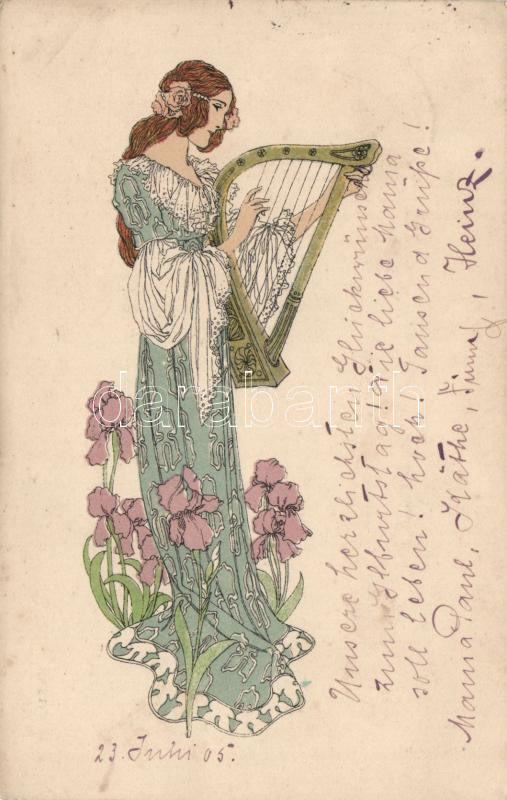 Unsere herzlichsten Glückwünsche
zum Geburtstag! Die liebe Mama
soll leben! hoch! Tausend Grüße!
Mama Paul, Käthe, Heinz.
23. Juni 05.
darabanth